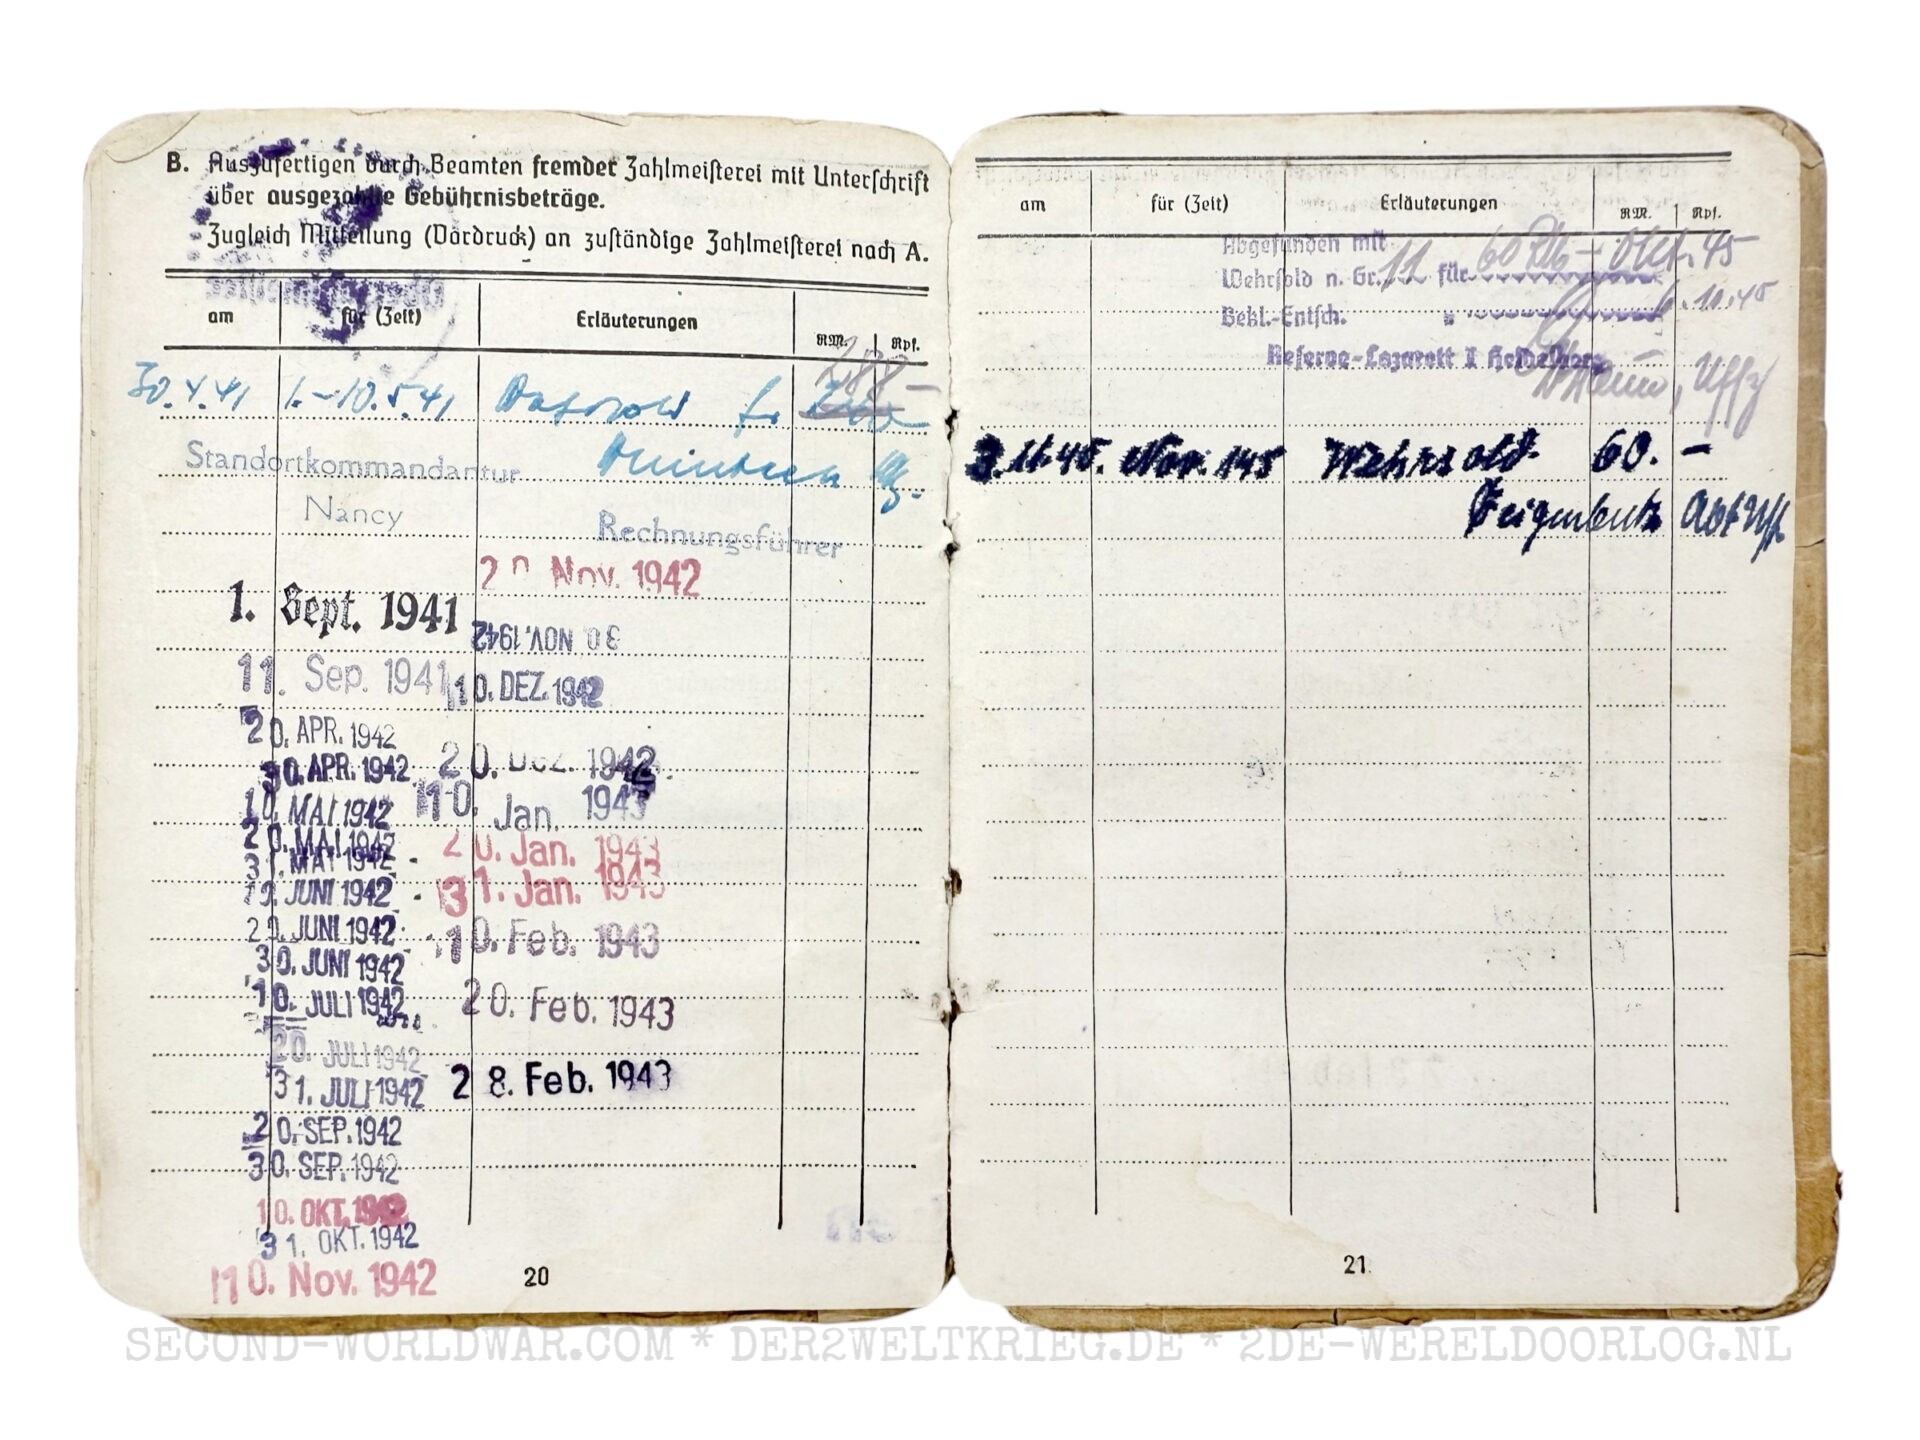 B. Auszufertigen durch Beamten fremder Zahlmeisterei mit Unterschrift
über ausgezahlte Gebührnisbeträge.
Zugleich Mitteilung (Vordruck) an zuständige Zahlmeisterei nach A.
am für (Zeit) Erläuterungen RM. Rpf.
30.4.41 1.-10.5.41 288 -
Standortkommandantur
Nancy
Rechnungsführer
1. Sept. 1941
11. Sep. 1941
20. APR. 1942
30. APR. 1942
10. MAI 1942
20. MAI 1942
31. MAI 1942
10. JUNI 1942
20. JUNI 1942
30. JUNI 1942
10. JULI 1942
20. JULI 1942
31. JULI 1942
20. SEP. 1942
30. SEP. 1942
10. OKT. 1942
31. OKT. 1942
10. Nov. 1942
20. Nov. 1942
30. NOV. 1942
10. DEZ. 1942
20. Dez. 1942
10. Jan. 1943
20. Jan. 1943
31. Jan. 1943
10. Feb. 1943
20. Feb. 1943
28. Feb. 1943
20
am für (Zeit) Erläuterungen RM. Rpf.
Abgefunden mit
Wehrsold n. Gr. 11 für 60 RM - Okt. 45
Bekl.-Entsch. 6.10.45
Reserve-Lazarett I Heidelberg
Uffz
3.11.45. Nov. 145 Wehrsold 60. -
Feigenbutz
21
SECOND-WORLDWAR.COM * DER2WELTKRIEG.DE * 2DE-WERELDOORLOG.NL